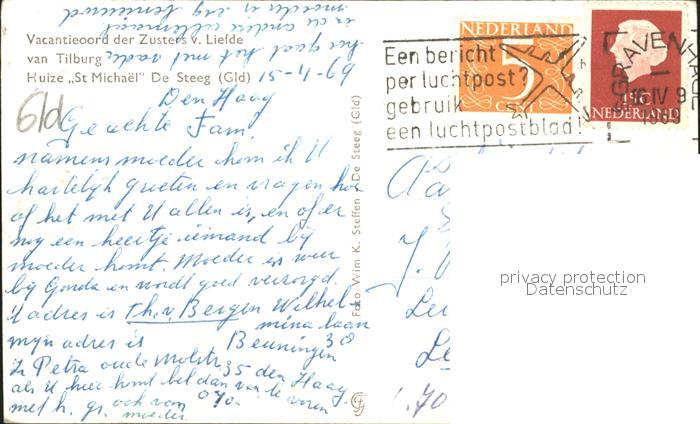 moeder is erg benieuwd
hoe gaat het met vader
Vacantieoord der Zusters v. Liefde
van Tilburg
Huize „St Michaël" De Steeg (Gld)
15-4-69
Den Haag
Gld
Geachte Fam.
namens moeder kom ik U
hartelijk groeten en vragen hoe
of het met U allen is, en of er
nog een keertje iemand bij
moeder komt. Moeder is weer
bij Gonda en wordt goed verzorgd.
adres is Th. v. Bergen Wilhel
mina laan
mijn adres is Beuningen 38
Zr Petra oude Molstr 35 den Haag
als U hier komt bel dan van te voren
met h. gr. ook van 070-
moeder.
Foto Wim K. Steffen De Steeg (Gld)
NEDERLAND
5
Een bericht
per luchtpost?
gebruik
een luchtpostblad!
'S GRAVENHA
16 IV
1969
NEDERLAND
privacy protection
Datenschutz
1.70